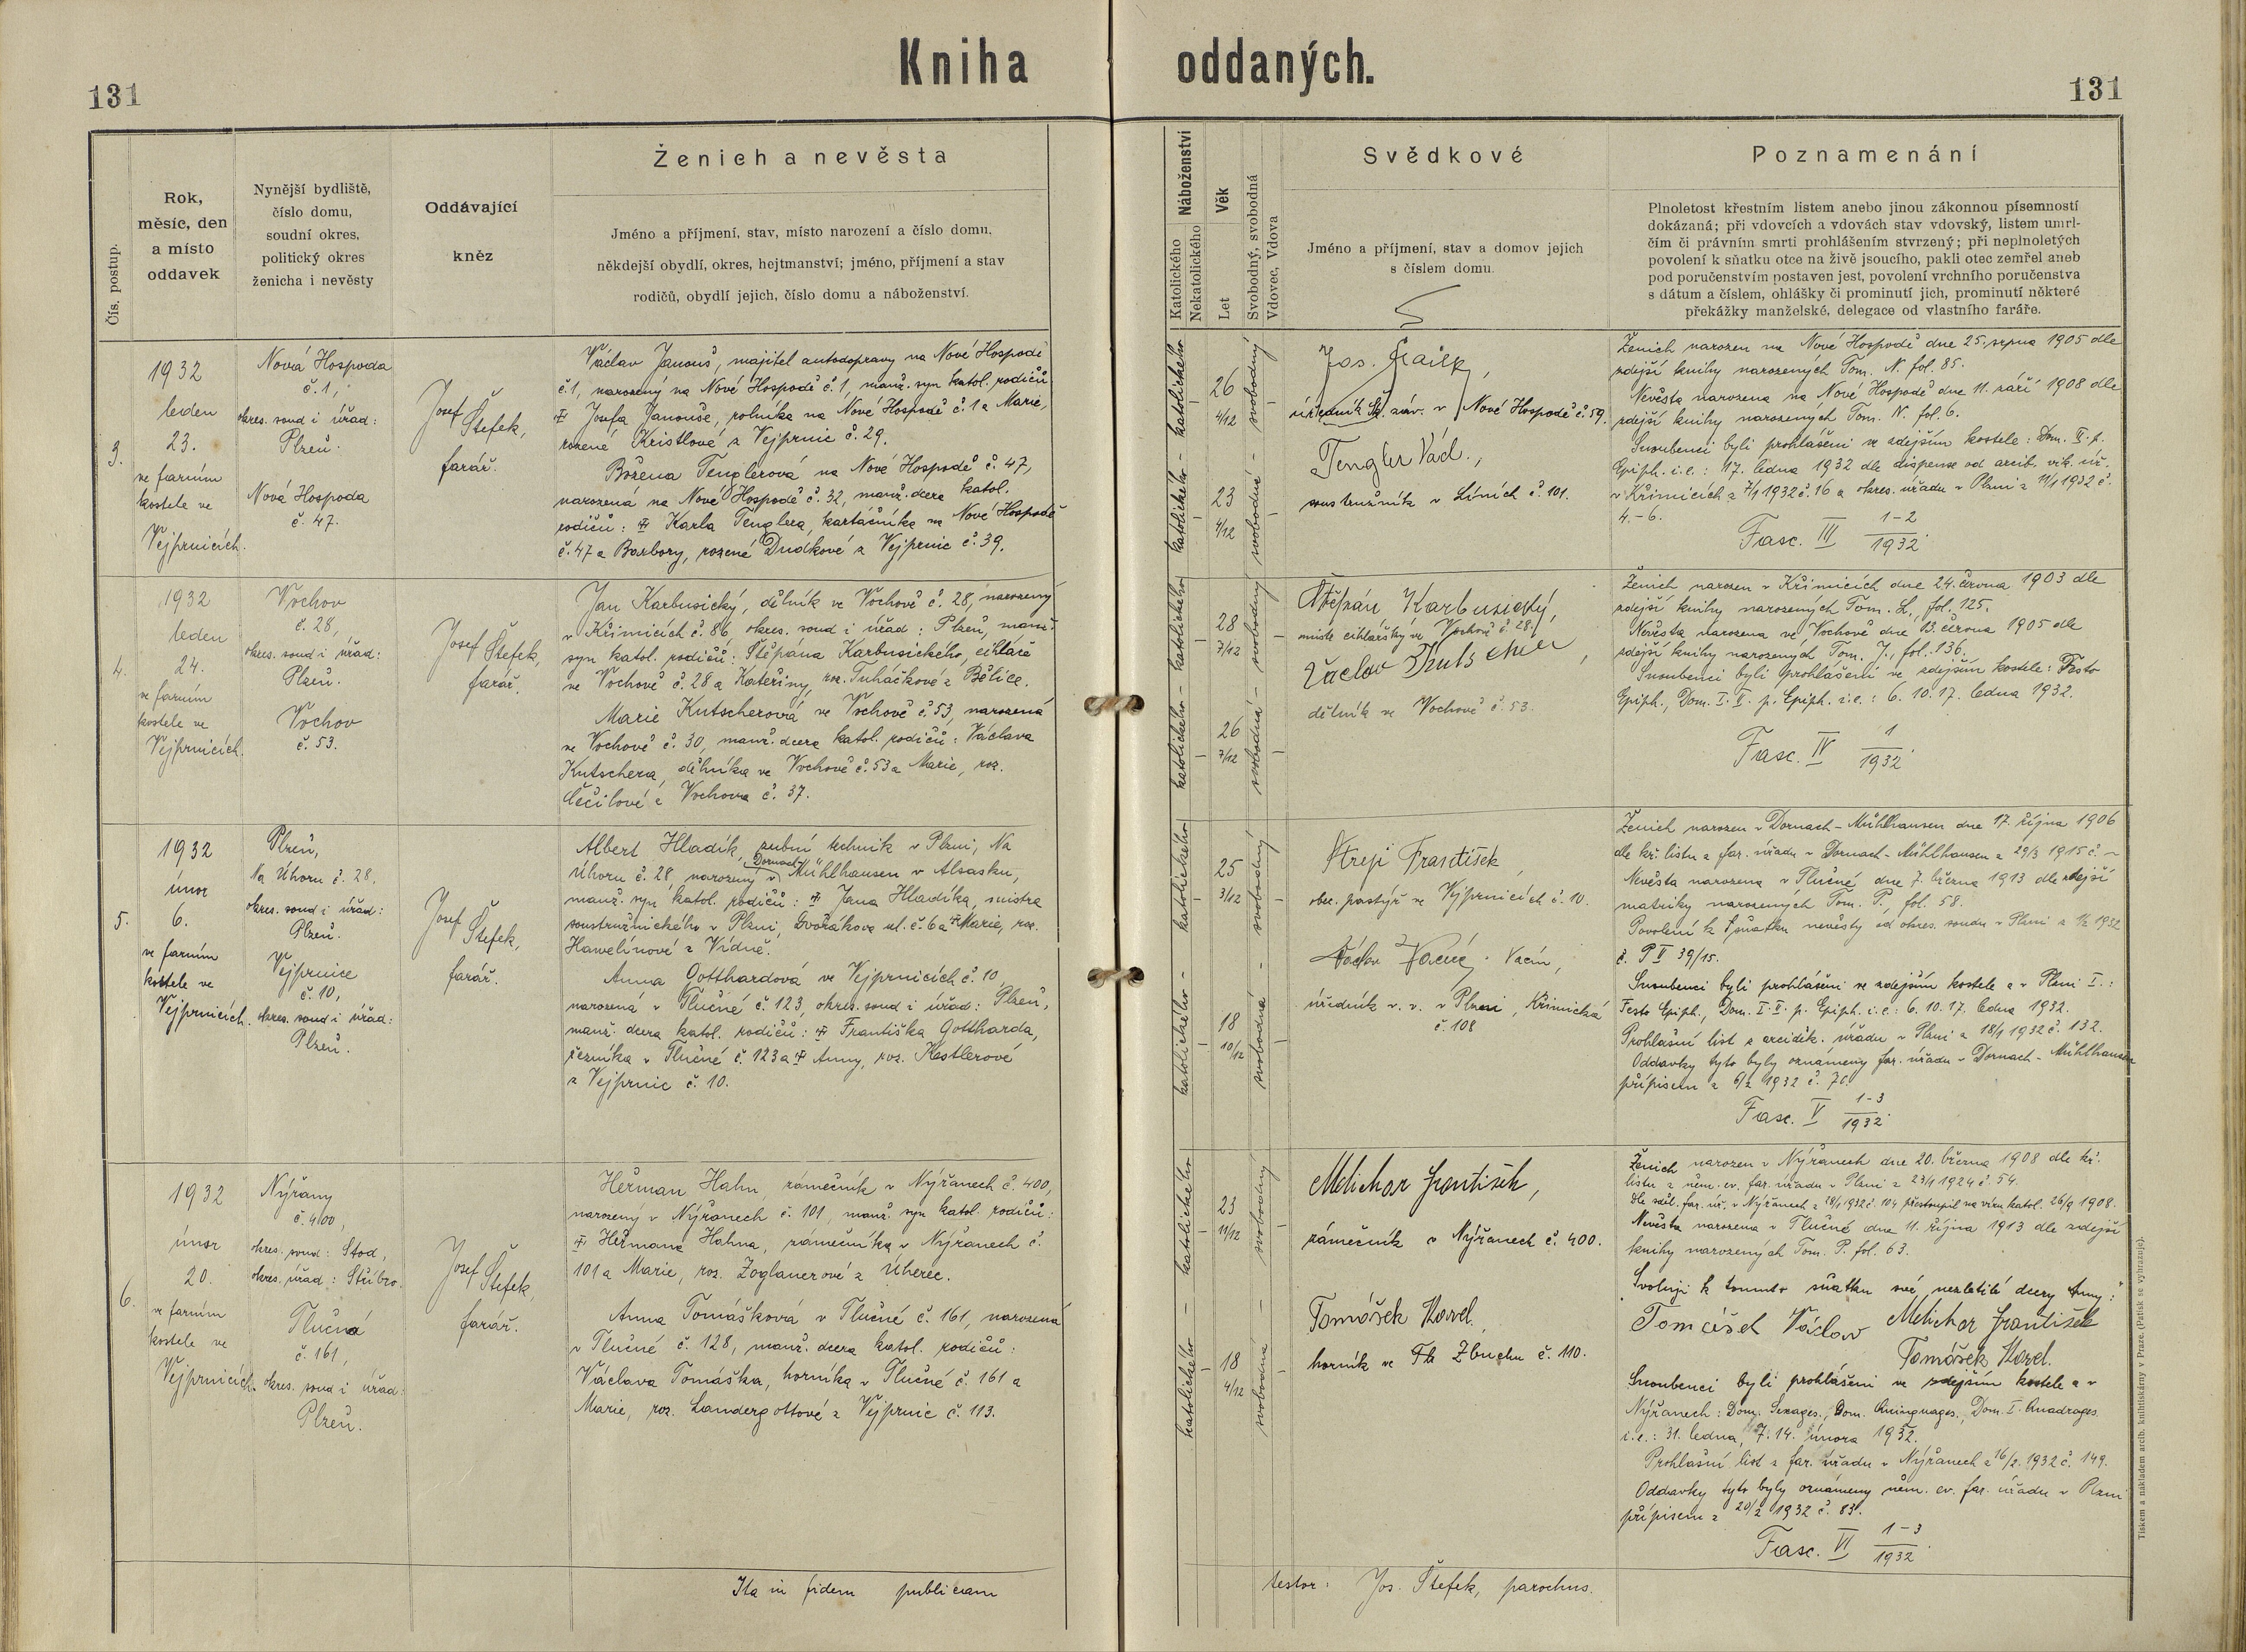 Kniha oddaných.
131
131
Čís. postup.
Rok,
měsíc, den
a místo
oddavek
Nynější bydliště,
číslo domu,
soudní okres,
politický okres
ženicha i nevěsty
Oddávající
kněz
Ženich a nevěsta
Jméno a příjmení, stav, místo narození a číslo domu,
někdejší obydlí, okres, hejtmanství; jméno, příjmení a stav
rodičů, obydlí jejich, číslo domu a náboženství.
Náboženství
Katolického
Nekatolického
Věk
Let
Svobodný, svobodná
Vdovec, Vdova
Svědkové
Jméno a příjmení, stav a domov jejich
s číslem domu.
Poznamenání
Plnoletost křestním listem anebo jinou zákonnou písemností
dokázaná; při vdovcích a vdovách stav vdovský, listem umrl-
čím či právním smrti prohlášením stvrzený; při neplnoletých
povolení k sňatku otce na živě jsoucího, pakli otec zemřel aneb
pod poručenstvím postaven jest, povolení vrchního poručenstva
s dátum a číslem, ohlášky či prominutí jich, prominutí některé
překážky manželské, delegace od vlastního faráře.
3.
1932
leden
23.
ve farním
kostele ve
Vejprnicích.
Nová Hospoda
č. 1,
okres. soud i úřad:
Plzeň.
Nová Hospoda
č. 47.
Josef
Štefek,
farář.
Václav Janouš, majitel autodopravy na Nové Hospodě
č. 1, narozený na Nové Hospodě č. 1, manž. syn katol. rodičů
Josefa Janouše, rolníka na Nové Hospodě č. 1 a Marie,
rozené Kristlové z Vejprnic č. 29.
Božena Tenglerová na Nové Hospodě č. 47,
narozená na Nové Hospodě č. 32, manž. dcera katol.
rodičů: Karla Tenglera, kartáčníka na Nové Hospodě
č. 47 a Barbory, rozené Dudkové z Vejprnic č. 39.
katolického – katolického
26
4/12
23
4/12
svobodný
svobodná
Jos.
úředník v Nové Hospodě č. 59.
Tengler Václ.,
soustružník v Líních č. 101.
Ženich narozen na Nové Hospodě dne 25. srpna 1905 dle
zdejší knihy narozených Tom. N. fol. 85.
Nevěsta narozena na Nové Hospodě dne 11. září 1908 dle
zdejší knihy narozených Tom. N. fol. 6.
Snoubenci byli prohlášeni ve zdejším kostele: Dom. II. p.
Epiph. i.e.: 17. ledna 1932 dle dispense od arcib. vik. úř.
v Křimicích z 7/1 1932 č. 16 a okres. úřadu v Plzni z 11/1 1932 č.
4.-6.
Fasc. III 1-2/1932
4.
1932
leden
24.
ve farním
kostele ve
Vejprnicích.
Vochov
č. 28,
okres. soud i úřad:
Plzeň.
Vochov
č. 53.
Josef Štefek,
farář.
Jan Karbusický, dělník ve Vochově č. 28, narozený
v Křimicích č. 86, okres. soud i úřad: Plzeň, manž.
syn katol. rodičů: Štěpána Karbusického, cihláře
ve Vochově č. 28 a Kateřiny, roz. Tuháčkové z Bělice.
Marie Kutscherová ve Vochově č. 53, narozená
ve Vochově č. 30, manž. dcera katol. rodičů: Václava
Kutschera, dělníka ve Vochově č. 53 a Marie, roz.
Čečilové z Vochova č. 37.
katolického – katolického
28
7/12
26
7/12
svobodný
svobodná
Štěpán Karbusický,
mistr cihlářský ve Vochově č. 28.
Václav Kutscher,
dělník ve Vochově č. 53.
Ženich narozen v Křimicích dne 24. června 1903 dle
zdejší knihy narozených Tom. L., fol. 125.
Nevěsta narozena ve Vochově dne 13. června 1905 dle
zdejší knihy narozených Tom. J., fol. 136.
Snoubenci byli prohlášeni ve zdejším kostele: Festo
Epiph., Dom. I. II. p. Epiph. i.e.: 6. 10. 17. ledna 1932.
Fasc. IV 1/1932
5.
1932
únor
6.
ve farním
kostele ve
Vejprnicích.
Plzeň,
Na Úhoru č. 28.
okres. soud i úřad:
Plzeň.
Vejprnice
č. 10,
okres. soud i úřad:
Plzeň.
Josef
Štefek,
farář.
Albert Hladík, zubní technik v Plzni, Na
Úhoru č. 28, narozený v Dornach Mühlhausen v Alsasku,
manž. syn katol. rodičů: Jana Hladíka, mistra
soustružnického v Plzni, Dvořákova ul. č. 6 a Marie, roz.
Hawelínové z Vídně.
Anna Gotthardová ve Vejprnicích č. 10,
narozená v Tlučné č. 123, okres. soud i úřad: Plzeň,
manž. dcera katol. rodičů: Františka Gottharda,
řezníka v Tlučné č. 123 a Anny, roz. Kestlerové
z Vejprnic č. 10.
katolického – katolického
25
3/12
18
10/12
svobodný
svobodná
František,
obec. pastýř ve Vejprnicích č. 10.
Václav Vacín,
úředník v. v. v Plzni, Křimická
č. 108
Ženich narozen v Dornach-Mühlhausen dne 17. října 1906
dle kř. listu z far. úřadu v Dornach-Mühlhausen z 29/3 1915 č. –
Nevěsta narozena v Tlučné dne 7. března 1913 dle zdejší
matriky narozených Tom. P. fol. 58.
Povolení k sňatku nevěsty od okres. soudu v Plzni z 1/2 1932
č. P II 39/15.
Snoubenci byli prohlášeni ve zdejším kostele a v Plzni I.:
Festo Epiph., Dom. I. II. p. Epiph. i.e.: 6. 10. 17. ledna 1932.
Prohlášní list z arciděk. úřadu v Plzni z 18/1 1932 č. 132.
Oddavky tyto byly oznámeny far. úřadu v Dornach-Mühlhausen
přípisem z 6/2 1932 č. 70.
Fasc. V 1-3/1932
6.
1932
únor
20.
ve farním
kostele ve
Vejprnicích.
Nýřany
č. 400,
okres. soud: Stod,
okres. úřad: Stříbro.
Tlučná
č. 161,
okres. soud i úřad:
Plzeň.
Josef Štefek,
farář.
Heřman Hahn, zámečník v Nýřanech č. 400,
narozený v Nýřanech č. 101, manž. syn katol. rodičů:
Heřmana Hahna, zámečníka v Nýřanech č.
101 a Marie, roz. Zoglauerové z Úherec.
Anna Tomášková v Tlučné č. 161, narozená
v Tlučné č. 128, manž. dcera katol. rodičů:
Václava Tomáška, horníka v Tlučné č. 161 a
Marie, roz. Landergottové z Vejprnic č. 113.
katolického – katolického
23
11/12
18
4/12
svobodný
svobodná
Melichar František,
zámečník v Nýřanech č. 400.
Tomášek Karel,
horník ve Zbuchu č. 110.
Ženich narozen v Nýřanech dne 20. března 1908 dle kř.
listu z něm. ev. far. úřadu v Plzni z 23/1 1924 č. 54.
Dle sděl. far. úř. v Nýřanech z 28/1 1932 č. 104 přestoupil na víru katol. 26/9 1908.
Nevěsta narozena v Tlučné dne 11. října 1913 dle zdejší
knihy narozených Tom. P. fol. 63.
Svoluji k tomuto sňatku své nezletilé dcery Anny:
Tomášek Václav Melichar František
Tomášek Karel.
Snoubenci byli prohlášeni ve zdejším kostele a v
Nýřanech: Dom. Sexages., Dom. Quinquages., Dom. I. Quadrages.
i.e.: 31. ledna, 7. 14. února 1932.
Prohlášní list z far. úřadu v Nýřanech z 16/2. 1932 č. 149.
Oddavky tyto byly oznámeny něm. ev. far. úřadu v Plzni
přípisem z 20/2 1932 č. 83.
Fasc. VI 1-3/1932
Ita in fidem publicam
testor: Jos. Štefek, parochus.
Tiskem a nákladem arcib. knihtiskárny v Praze. (Patisk se vyhrazuje).